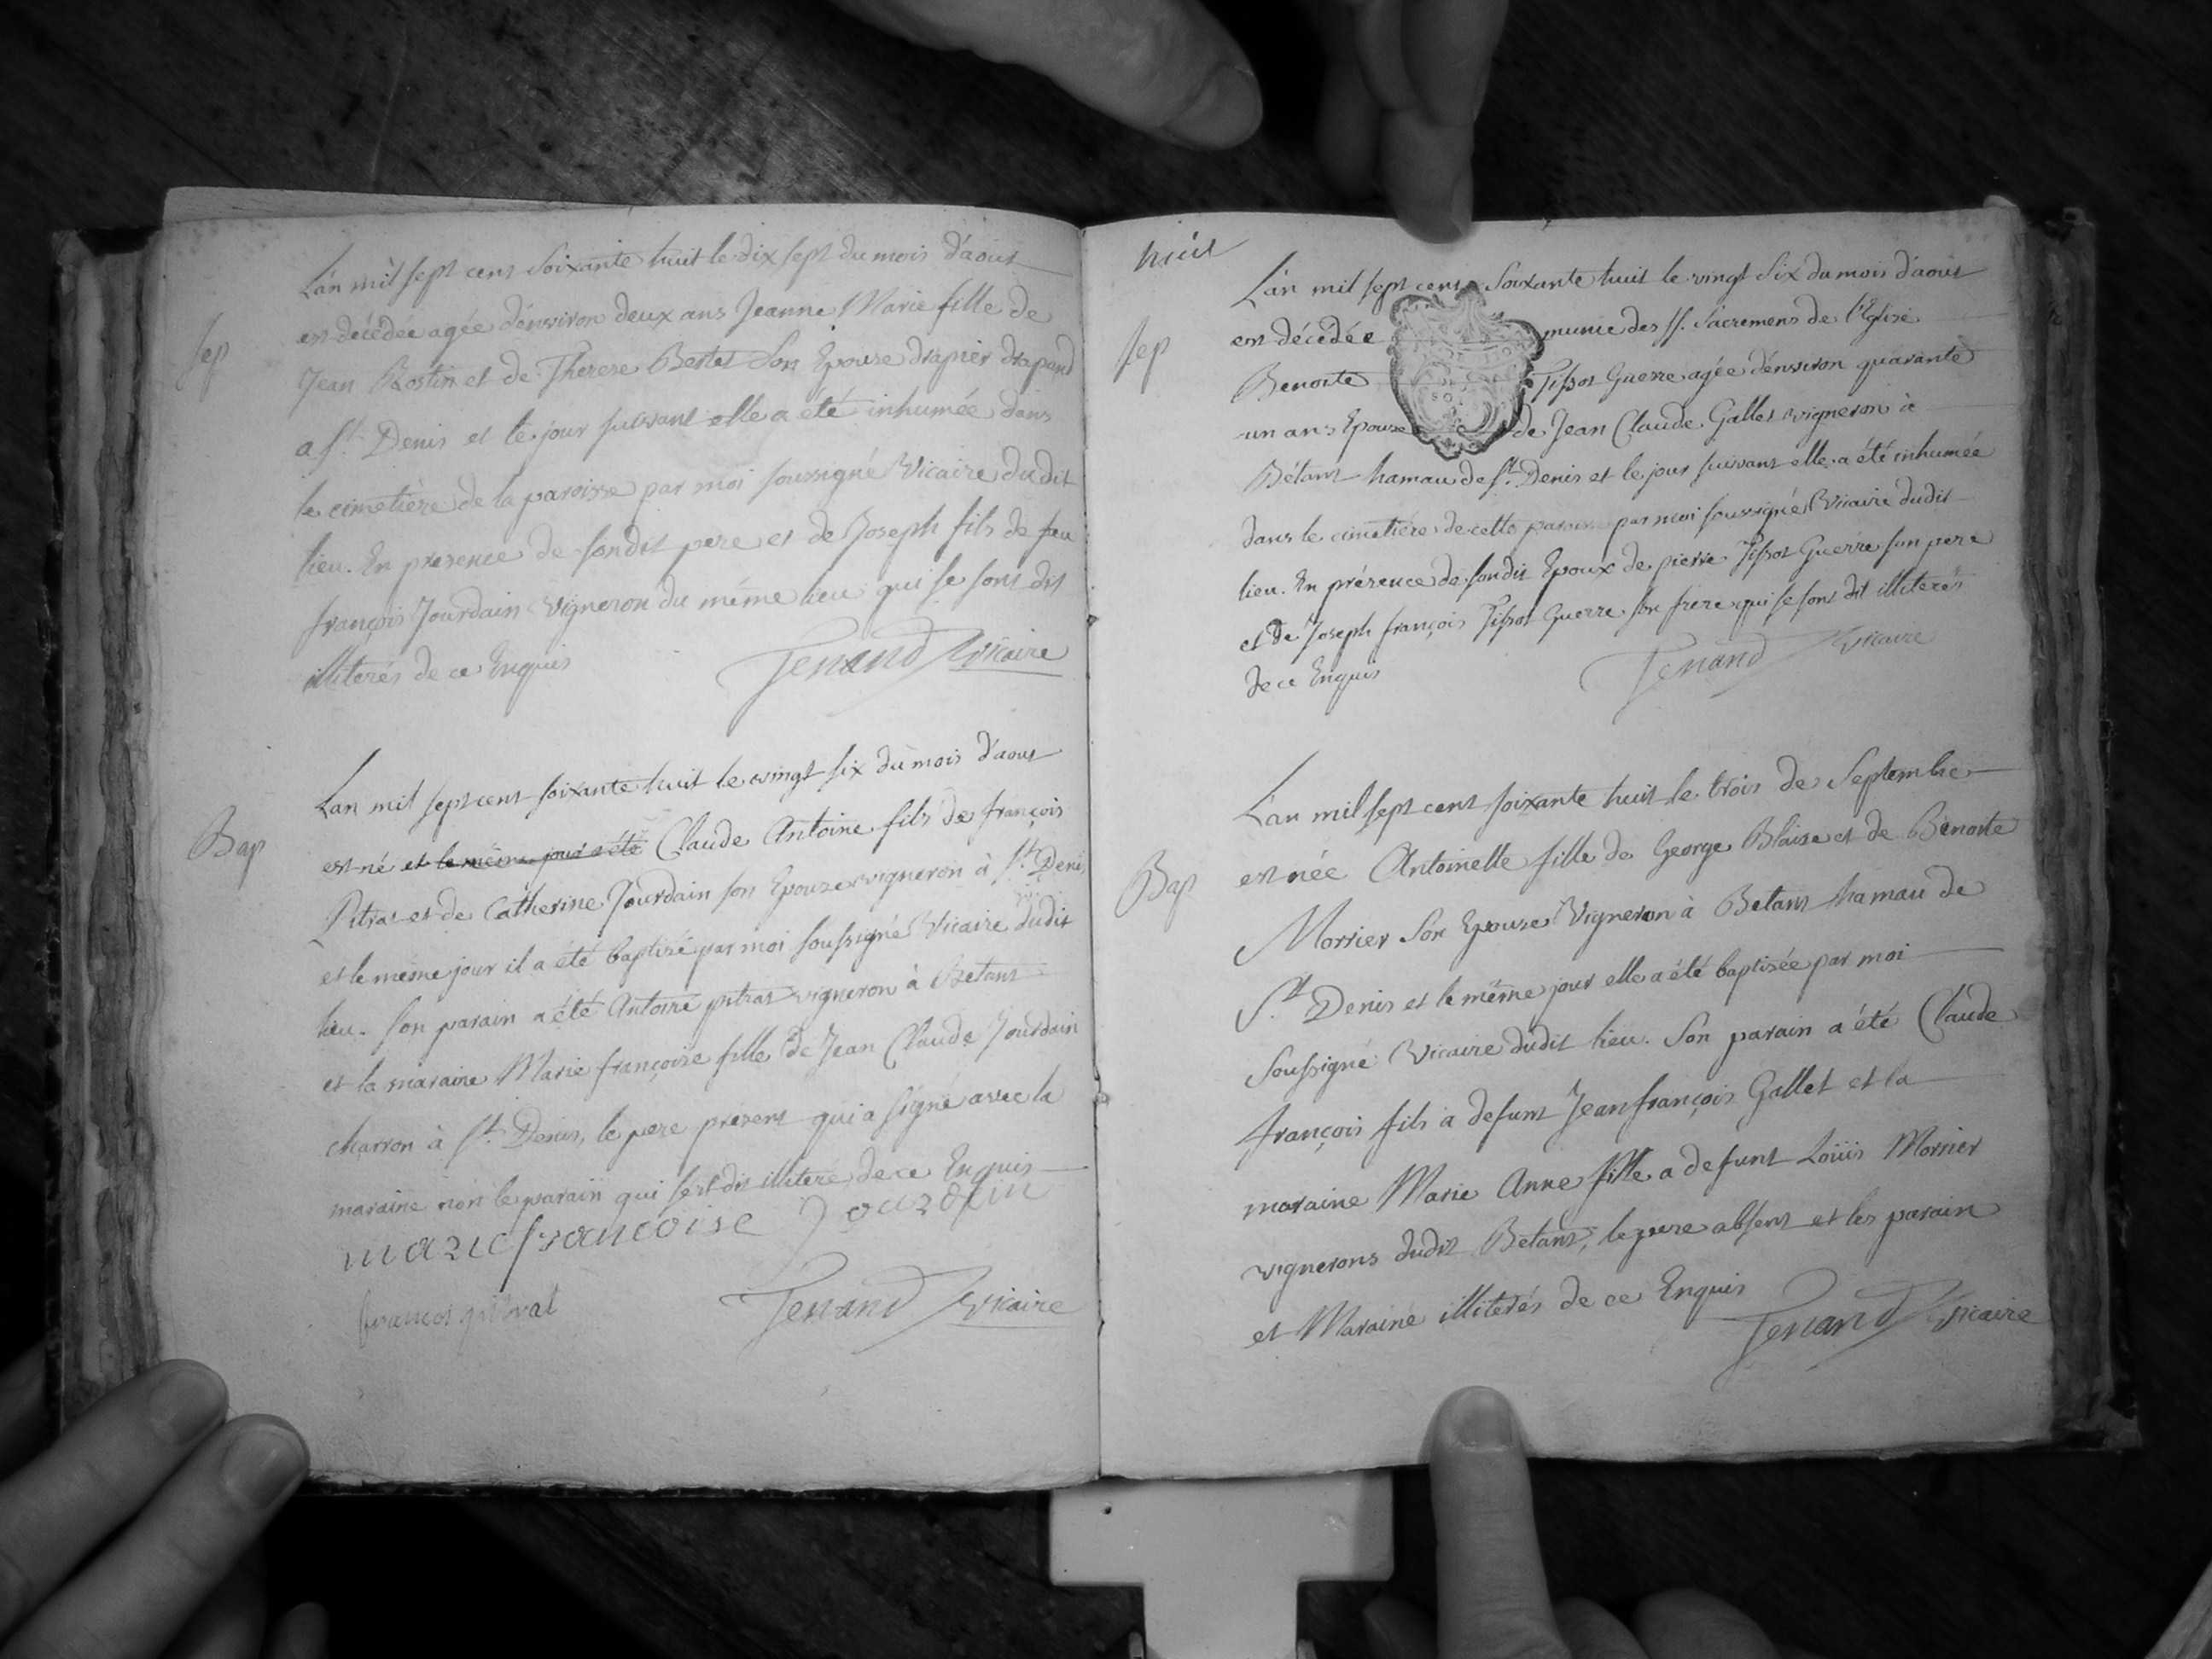 Sep
L'an mil sept cent soixante huit le dix sept du mois d'aout
est décédée agée d'environ deux ans Jeanne Marie fille de
Jean Rostin et de Therese Bertet son Epouse drapier drapand
a St. Denis et le jour suivant elle a été inhumée dans
le cimetière de la paroisse par moi soussigné Vicaire dudit
lieu. En presence de sondit pere et de Joseph fils de feu
françois Jourdain vigneron du même lieu qui se sont dit
illiterés de ce Enquis
Tenand Vicaire
Bap
L'an mil sept cent soixante huit le vingt six du mois d'aout
est né et le même jour a été Claude Antoine fils de françois
Pitrat et de Catherine Jourdain son Epouse vigneron à St. Denis
et le même jour il a été baptisé par moi soussigné Vicaire dudit
lieu. son parain a été Antoine pitrat vigneron à Betant
et la maraine Marie françoise fille de Jean Claude Jourdain
charron à St. Denis, le pere présent qui a signé avec la
maraine non le parain qui s'est dit illiteré de ce Enquis
marie francoise Jourdain
francoi pitrat
Tenand Vicaire
huit
Sep
L'an mil sept cent soixante huit le vingt six du mois d'aout
est décédée munie des SS. Sacremens de l'Eglise
Benoite Tissot Guerre agée d'environ quarante
un ans Epouse de Jean Claude Gallet vigneron à
Bétant hamau de St. Denis et le jour suivant elle a été inhumée
dans le cimetière de cette paroisse par moi soussigné Vicaire dudit
lieu. En présence de sondit Epoux de pierre Tissot Guerre son pere
et de Joseph françois Tissot Guerre son frere qui se sont dit illiterés
de ce Enquis
Tenand Vicaire
Bap
L'an mil sept cent soixante huit le trois de Septembre
est née Antoinette fille de George Blaise et de Benoite
Morrier son Epouse Vigneron à Betant hamau de
St. Denis et le même jour elle a été baptisée par moi
Soussigné Vicaire dudit lieu. Son parain a été Claude
françois fils a defunt Jean françois Gallet et la
maraine Marie Anne fille a defunt Loüis Morrier
vignerons dudit Betant, le pere absent et les parain
et Maraine illiterés de ce Enquis
Tenand Vicaire